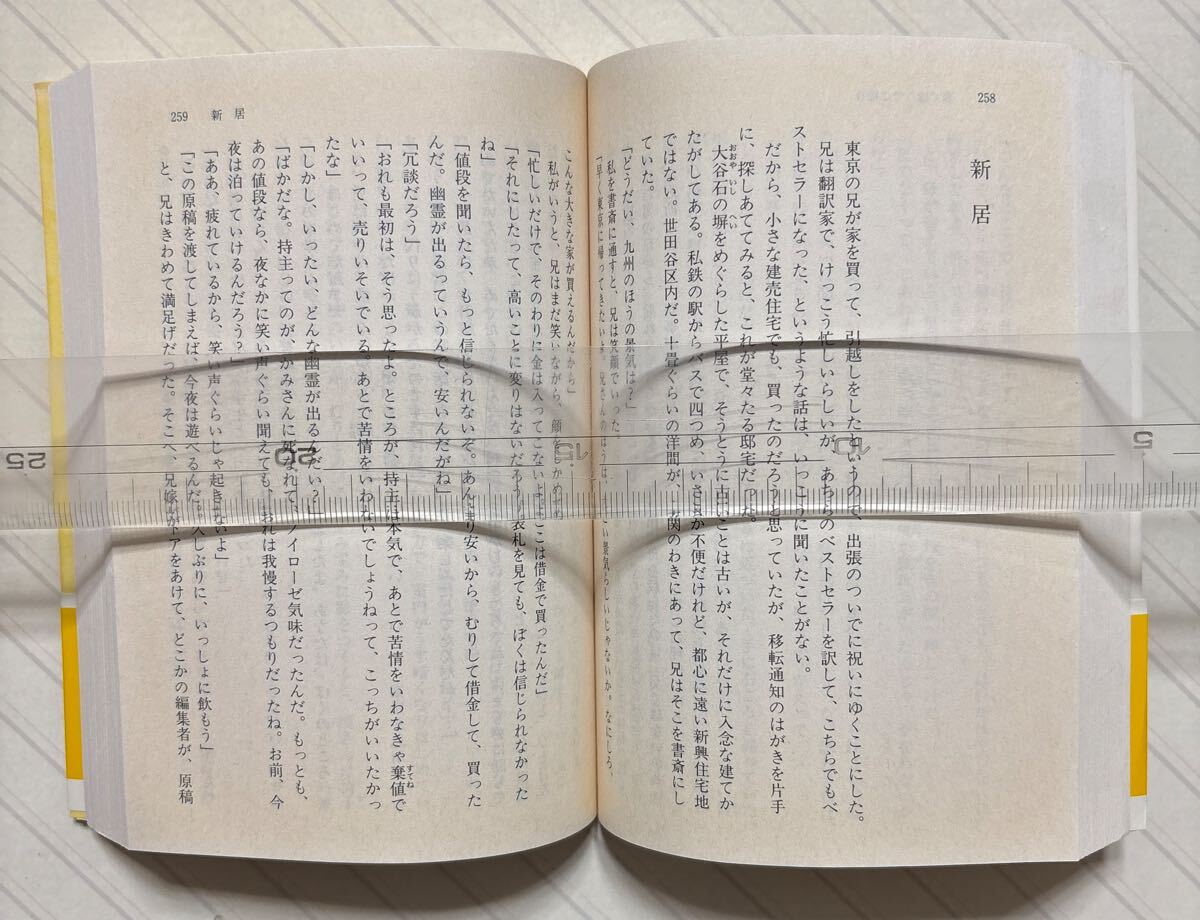 258
新居
東京の兄が家を買って、引越しをしたというので、出張のついでに祝いにゆくことにした。
兄は翻訳家で、けっこう忙しいらしいが、あちらのベストセラーを訳して、こちらでもベ
ストセラーになった、というような話は、いっこうに聞いたことがない。
だから、小さな建売住宅でも、買ったのだろうと思っていたが、移転通知のはがきを片手
に、探しあててみると、これが堂々たる邸宅だった。
大谷石の塀をめぐらした平屋で、そうとうに古いことは古いが、それだけに入念な建てか
おおやいし へい
たがしてある。私鉄の駅からバスで四つめ、いささか不便だけれど、都心に遠い新興住宅地
ではない。世田谷区内だ。十畳ぐらいの洋間が、玄関のわきにあって、兄はそこを書斎にし
ていた。
「どうだい、九州のほうの景気は？」
私を書斎に通すと、兄は笑顔でいった。
「早く東京に帰ってきたいよ。兄さんのほうは、景気らしいじゃないか。なにしろ、
259 新居
こんな大きな家が買えるんだから」
私がいうと、兄はまだ笑いながら、顔をしかめ
「忙しいだけで、そのわりに金は入ってこないよ。ここは借金で買ったんだ」
「それにしたって、高いことに変りはないだろう。表札を見ても、ぼくは信じられなかった
ね」
「値段を聞いたら、もっと信じられないぞ。あんまり安いから、むりして借金して、買った
んだ。幽霊が出るっていうんで、安いんだがね」
「冗談だろう」
「おれも最初は、そう思ったよ。ところが、持主は本気で、あとで苦情をいわなきゃ棄値で
すてね
いいって、売りいそいでいる。あとで苦情をいわないでしょうねって、こっちがいいたかっ
たな」
「しかし、いったい、どんな幽霊が出るんだい？」
「ばかだな。持主ってのが、かみさんに死なれて、ノイローゼ気味だったんだ。もっとも、
あの値段なら、夜なかに笑い声ぐらい聞えても、おれは我慢するつもりだったね。お前、今
夜は泊っていけるんだろう？」
「ああ、疲れているから、笑い声ぐらいじゃ起きないよ」
「この原稿を渡してしまえば、今夜は遊べるんだ。久しぶりに、いっしょに飲もう」
と、兄はきわめて満足げだった。そこへ、兄嫁がドアをあけて、どこかの編集者が、原稿
25
20
15
10
5